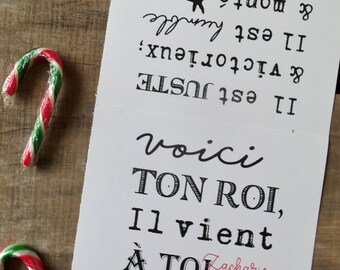 voici
TON ROI,
Il vient
À TOI
Zachar
Il est JUSTE
& victorieux;
Il est humble
& monté